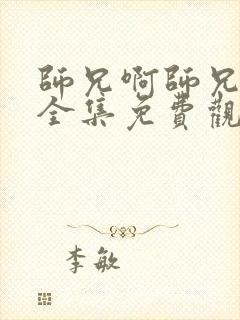 師兄啊師兄
全集免費觀
李敏